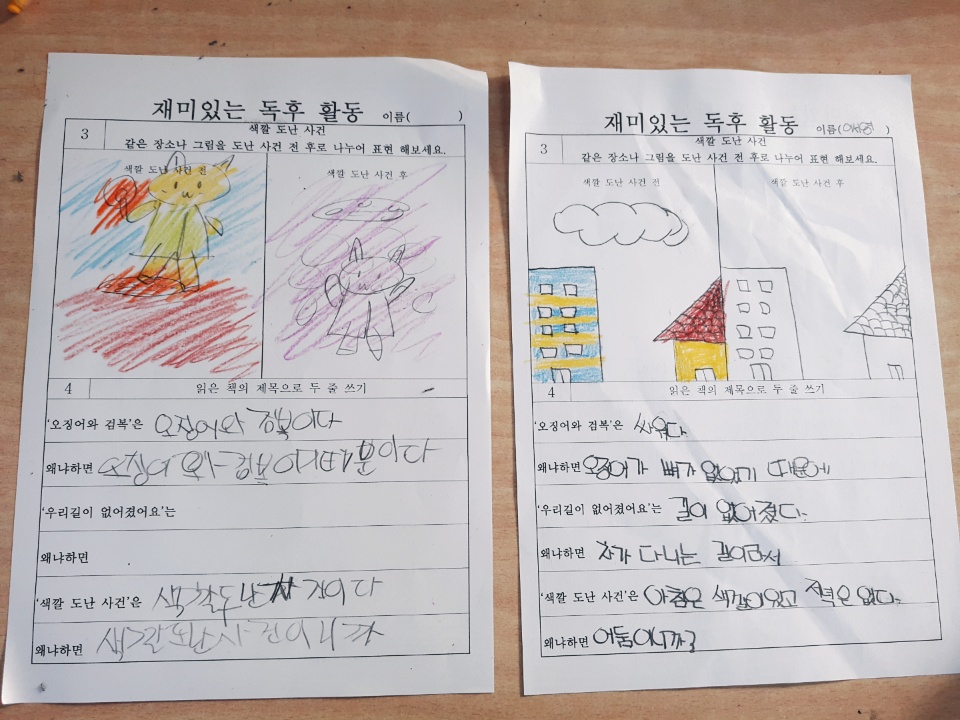 재미있는 독후 활동 이름( )
3
색깔 도난 사건
같은 장소나 그림을 도난 사건 전 후로 나누어 표현 해보세요.
색깔 도난 사건 전
색깔 도난 사건 후
4
읽은 책의 제목으로 두 줄 쓰기
'오징어와 검복'은 오징어와 검복이다
왜냐하면 오징어 와 검복이니 때문이다
'우리길이 없어졌어요'는
왜냐하면
'색깔 도난 사건'은 색깔도난 사건이다
왜냐하면 색깔도난사건이니까
재미있는 독후 활동 이름( )
3
색깔 도난 사건
같은 장소나 그림을 도난 사건 전 후로 나누어 표현 해보세요.
색깔 도난 사건 전
색깔 도난 사건 후
4
읽은 책의 제목으로 두 줄 쓰기
'오징어와 검복'은 싸웠다
왜냐하면 오징어가 뼈가 없었기 때문에
'우리길이 없어졌어요'는 길이 없어졌다.
왜냐하면 차가 다니는 길이라서
'색깔 도난 사건'은 아침은 색깔이있고 저녁은 없다.
왜냐하면 어둠이니까